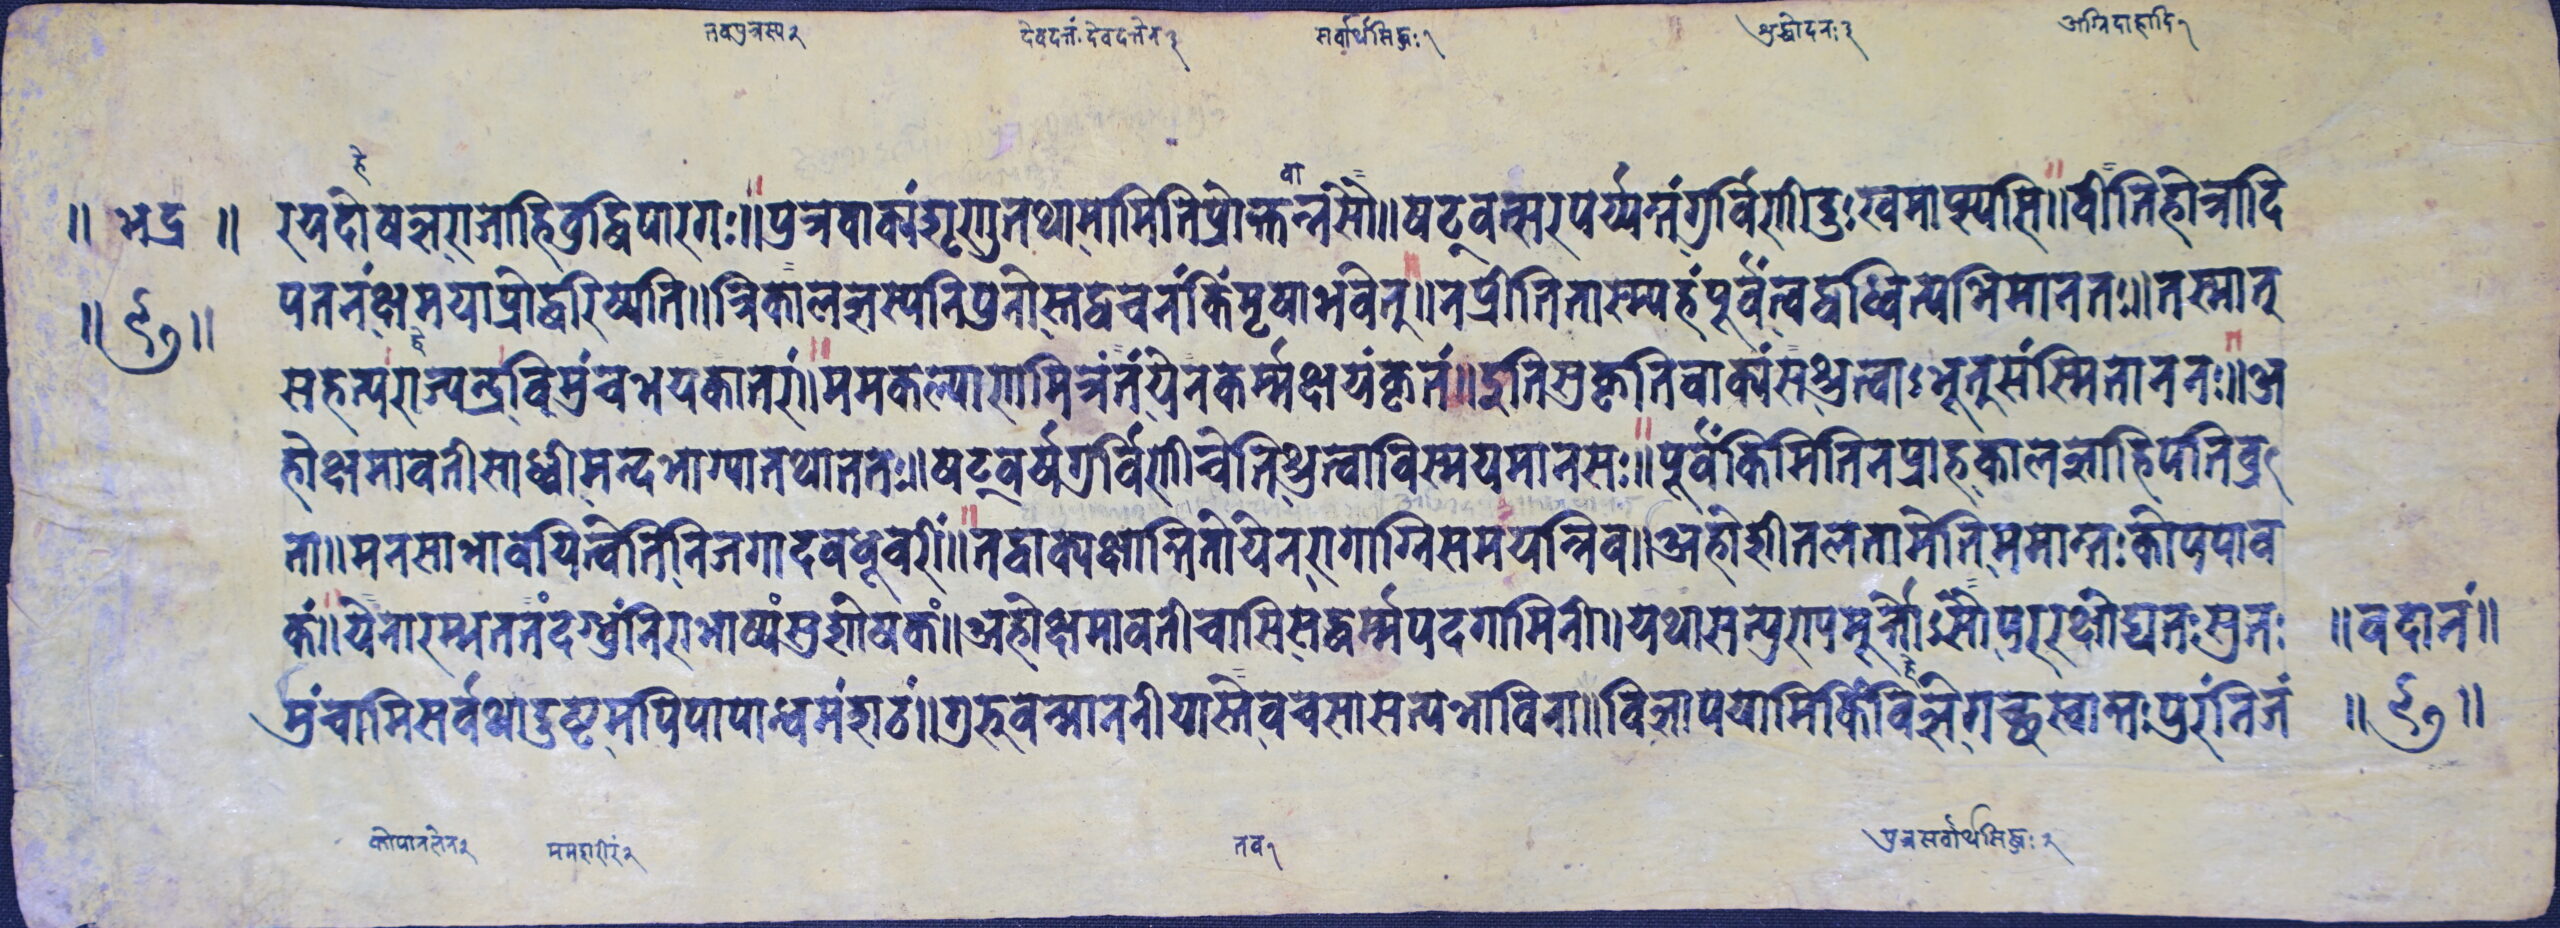 तवपुत्रस्य२ देवदत्तं.देवदत्तेन३ सर्वार्थसिद्धः१ शुद्धोदनः३ अग्निदाहादि१
हे वा
॥ भद्र ॥ रयदोषज्ञराजाहिबुद्धिपारगः॥पुत्रवाक्यंशृणुतथामामितिप्रोक्तवान्नसौ॥षट्वत्सरपर्य्यन्तंगुर्विणीदुःखमाप्स्यसि॥वीतिहोत्रादि
॥ ९७ ॥ पतनंक्षमयाप्रोद्धरिष्यति॥त्रिकालज्ञस्यनिपुनोस्तद्वचनंकिंमृषाभवेत्॥नप्रीतितास्म्यहंपूर्वंत्वद्वध्वित्यभिमानतः॥तस्मात्
हे
सहत्यंराज्येन्द्रविमुंचभयकातरां॥ममकल्याणमित्रंतंयेनकर्म्मक्षयंकृतं॥इतिप्रकृतिवाक्यंसश्रुत्वाऽभूत्सुसंस्मिताननः॥अ
होक्षमावतीसाध्वीमन्दभाग्यातथाततः॥षट्वर्षगुर्विणीचेतिश्रुत्वाविस्मयमानसः॥पूर्वंकिमितिनप्राहकालज्ञाहिपतिव्र
ता॥मनसाभावयित्वेतिनिजगादवधूवरीं॥तद्वाक्यक्षान्तितोयेनरागाग्निसमयन्निव॥अहोशीतलतामेतिममान्तःकोपपाव
कं॥येनारम्भततनंदग्धुंनिराभाष्यंसुशोषकं॥अहोक्षमावतीचासिसद्धर्म्मपदगामिनी॥यथासत्पुरापमूर्त्तोऽसौपुररक्षोद्यतःसुतः ॥वदानं॥
हे
मुंचामिसर्वथादुष्टमपिपापान्धमंशठं॥गुरुवन्माननीयास्तेवचसासत्यभाविना॥विज्ञापयामिकिंविज्ञेगच्छस्वान्तःपुरंनिजं ॥ ९७ ॥
कोपानलेन२ ममशरीरं२ तव१ पुत्रसर्वार्थसिद्धः२